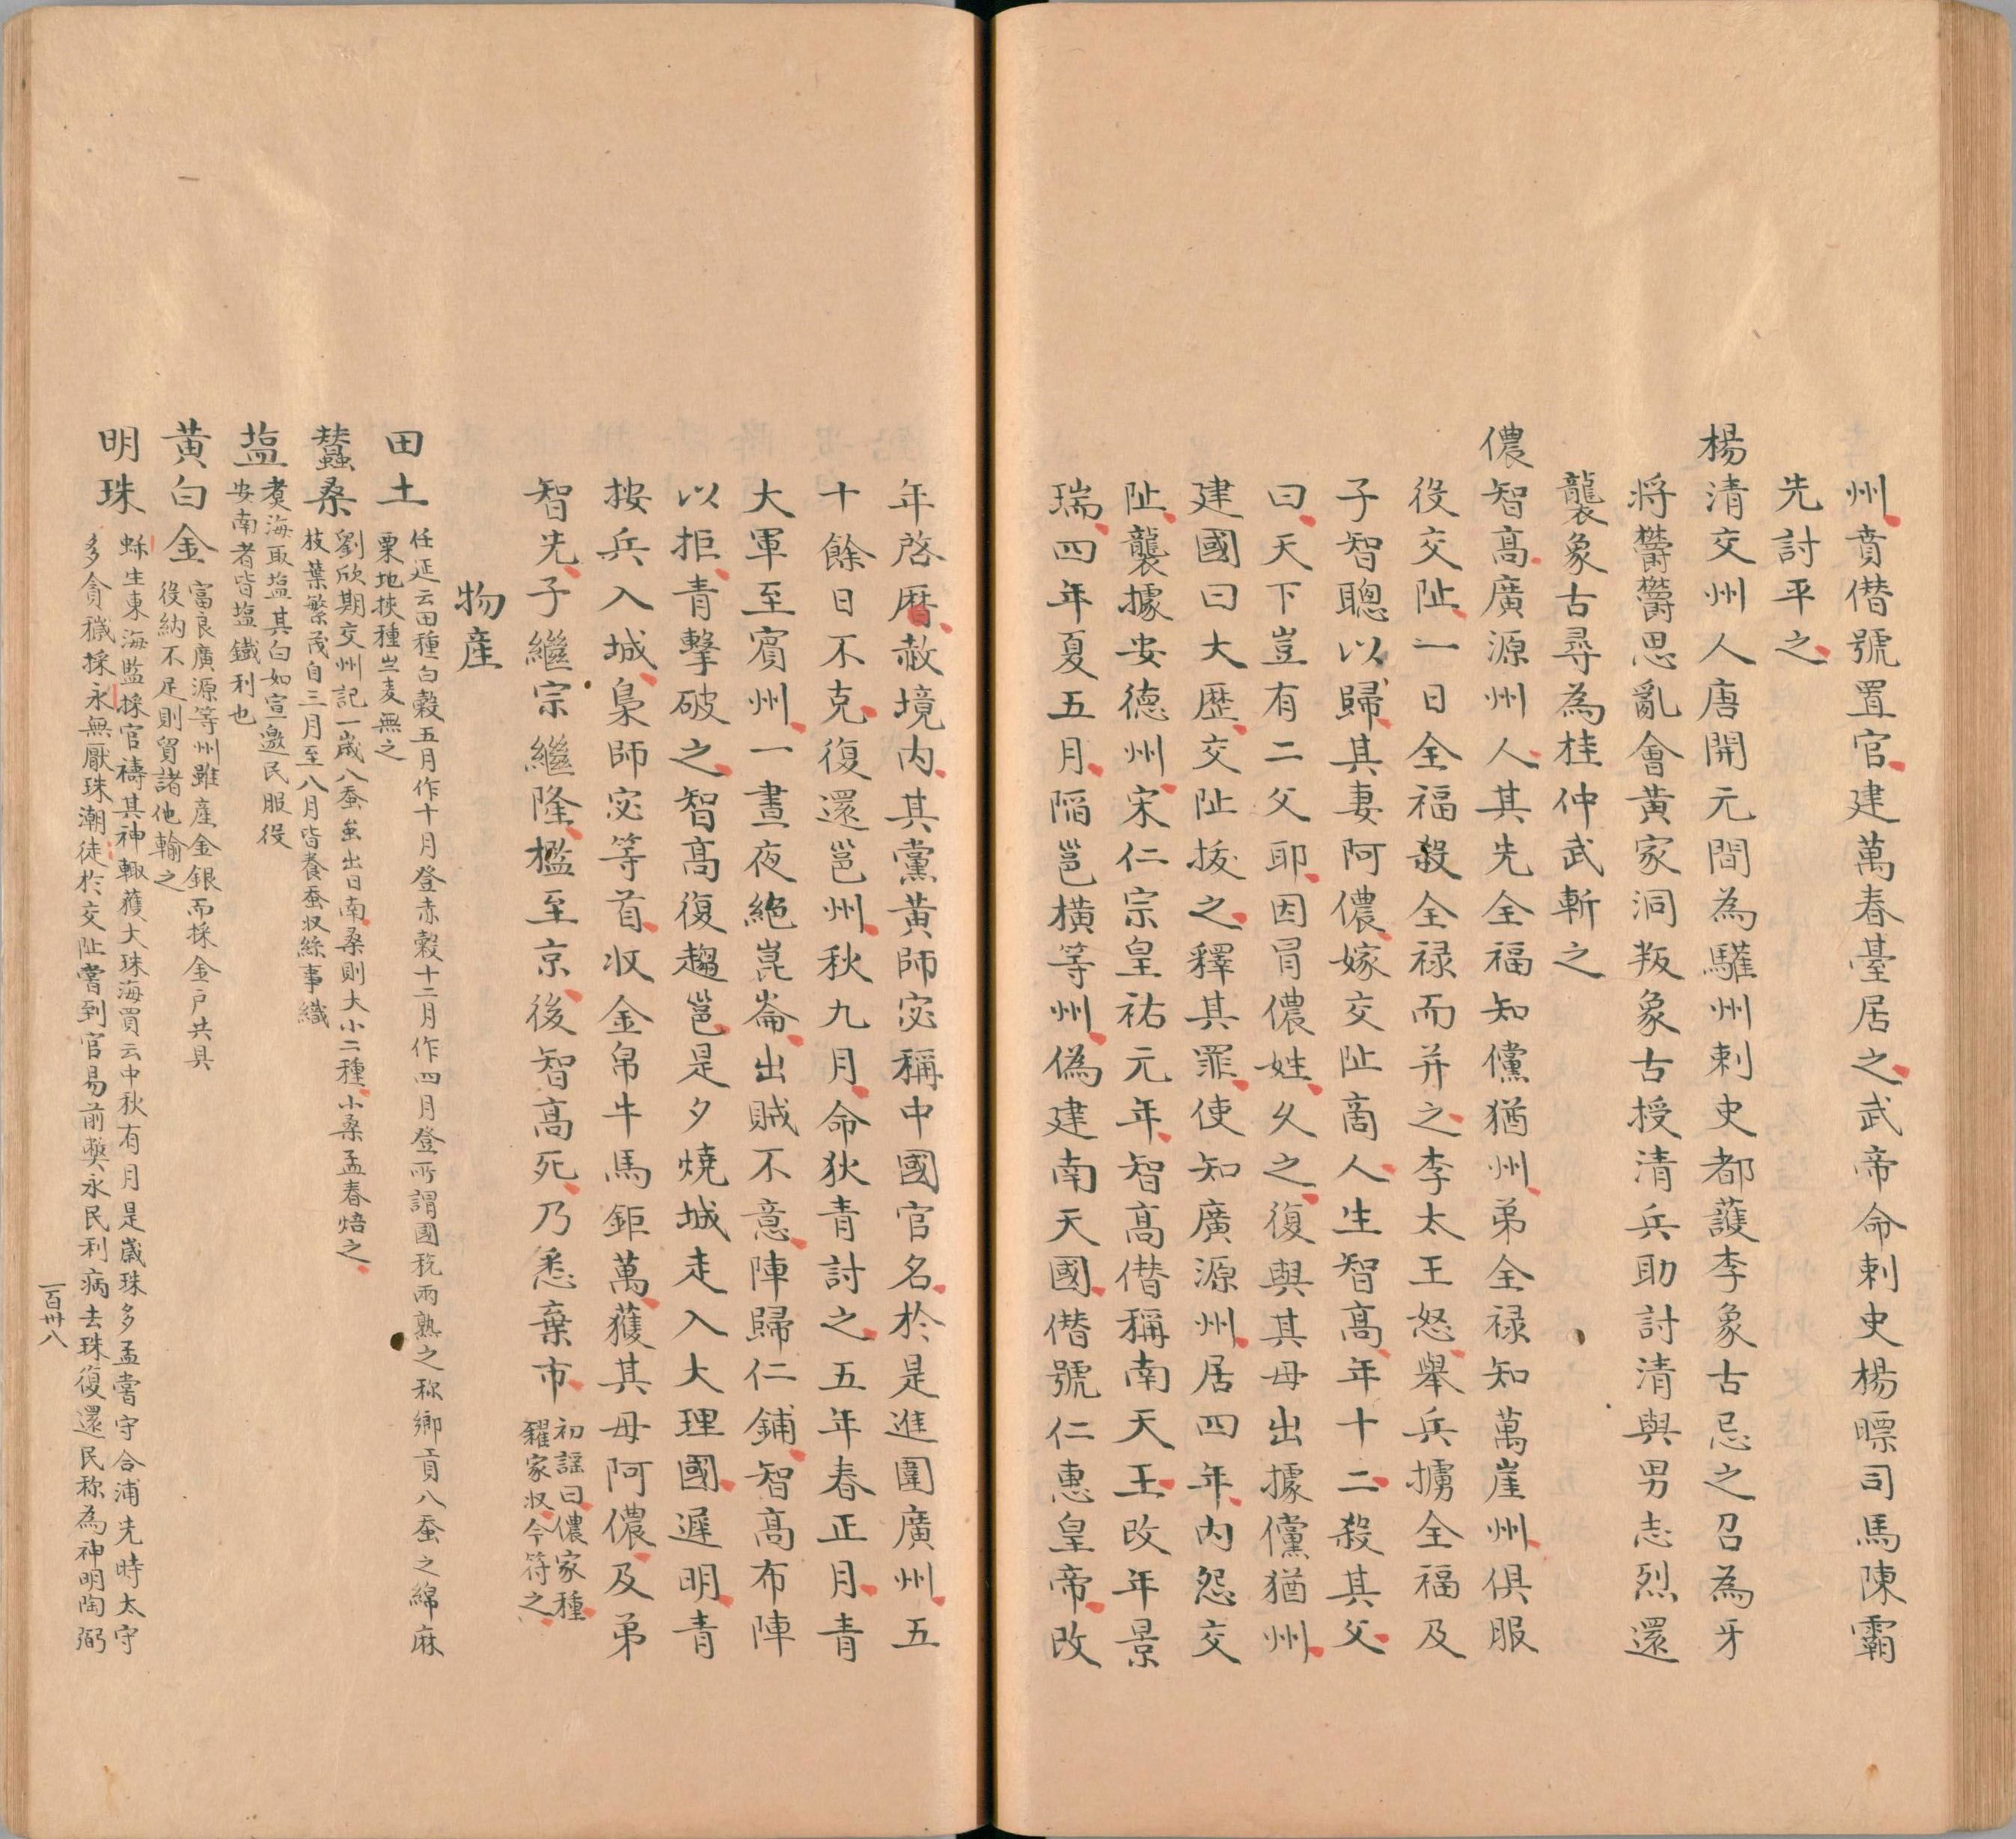 州賁僣號置官建萬春臺居之武帝命刺史楊瞟司馬陳霸
先討平之
楊清交州人唐開元間為驩州刺史都護李象古忌之召為牙
将欝欝思亂會黄家洞叛象古授清兵助討清與男志烈還
襲象古尋為桂仲武斬之
儂智高廣源州人其先全福知儻猶州弟全禄知萬崖州俱服
役交阯一日全福殺全禄而并之李太王怒舉兵擄全福及
子智聰以歸其妻阿儂嫁交阯商人生智高年十二殺其父
曰天下豈有二父耶因冐儂姓久之復與其母出據儻猶州
建國曰大歷交阯拔之釋其罪使知廣源州居四年内怨交
阯襲據安德州宋仁宗皇祐元年智高僣稱南天王改年景
瑞四年夏五月䧟邕横等州偽建南天國僣號仁惠皇帝改
年啓暦赦境内其黨黄師宓稱中國官名於是進圍廣州五
十餘日不克復還邕州秋九月命狄青討之五年春正月青
大軍至賓州一晝夜絶崑崙出賊不意陣歸仁鋪智高布陣
以拒青擊破之智高復趨邕是夕燒城走入大理國遲明青
按兵入城梟師宓等首收金帛牛馬鉅萬獲其母阿儂及弟
智光子繼宗繼隆檻至京後智高死乃悉棄市
初謡曰儂家種
糴家収今符之
物産
田土
任延云田種白穀五月作十月登赤穀十二月作四月登所謂國稅兩熟之称鄉貢八蚕之綿麻
粟地挾種豈麦無之
蠶桑
劉欣期交州記一歳八蚕𠅤出日南桑則大小二種小桑孟春焙之
枝葉繁茂自三月至八月皆養蚕収絲事織
塩
煑海取塩其白如宣邀民服役
安南者皆塩鐵利也
黄白金
富良廣源等州雖産金銀而採金戶共具
役納不足則貿諸他輸之
明珠
蛛生東海監採官禱其神輙獲大珠海買云中秋有月是歳珠多孟嘗守合浦先時太守
多貪穢採永無厭珠潮徒於交阯嘗到官易前獘永民利病去珠復還民称為神明陶弼
一百卅八